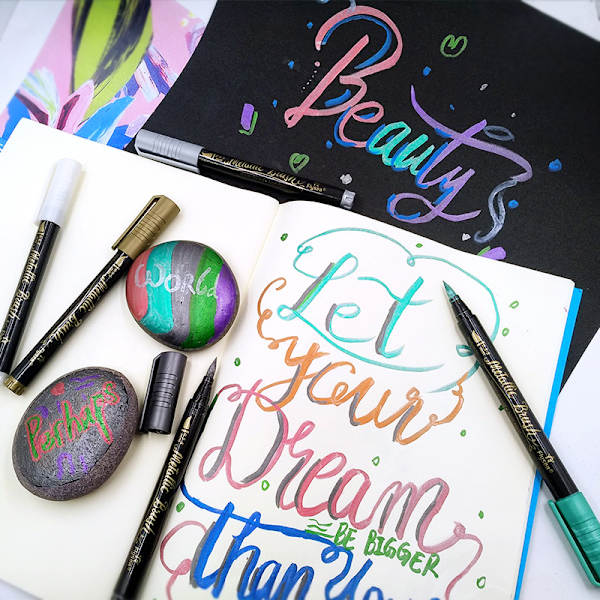 Beauty
Metallic Brush
World
Metallic Brush
Metallic Brush
Let
your
Metallic Brush
Perhaps
Dream
Metallic Brush
BE BIGGER
than